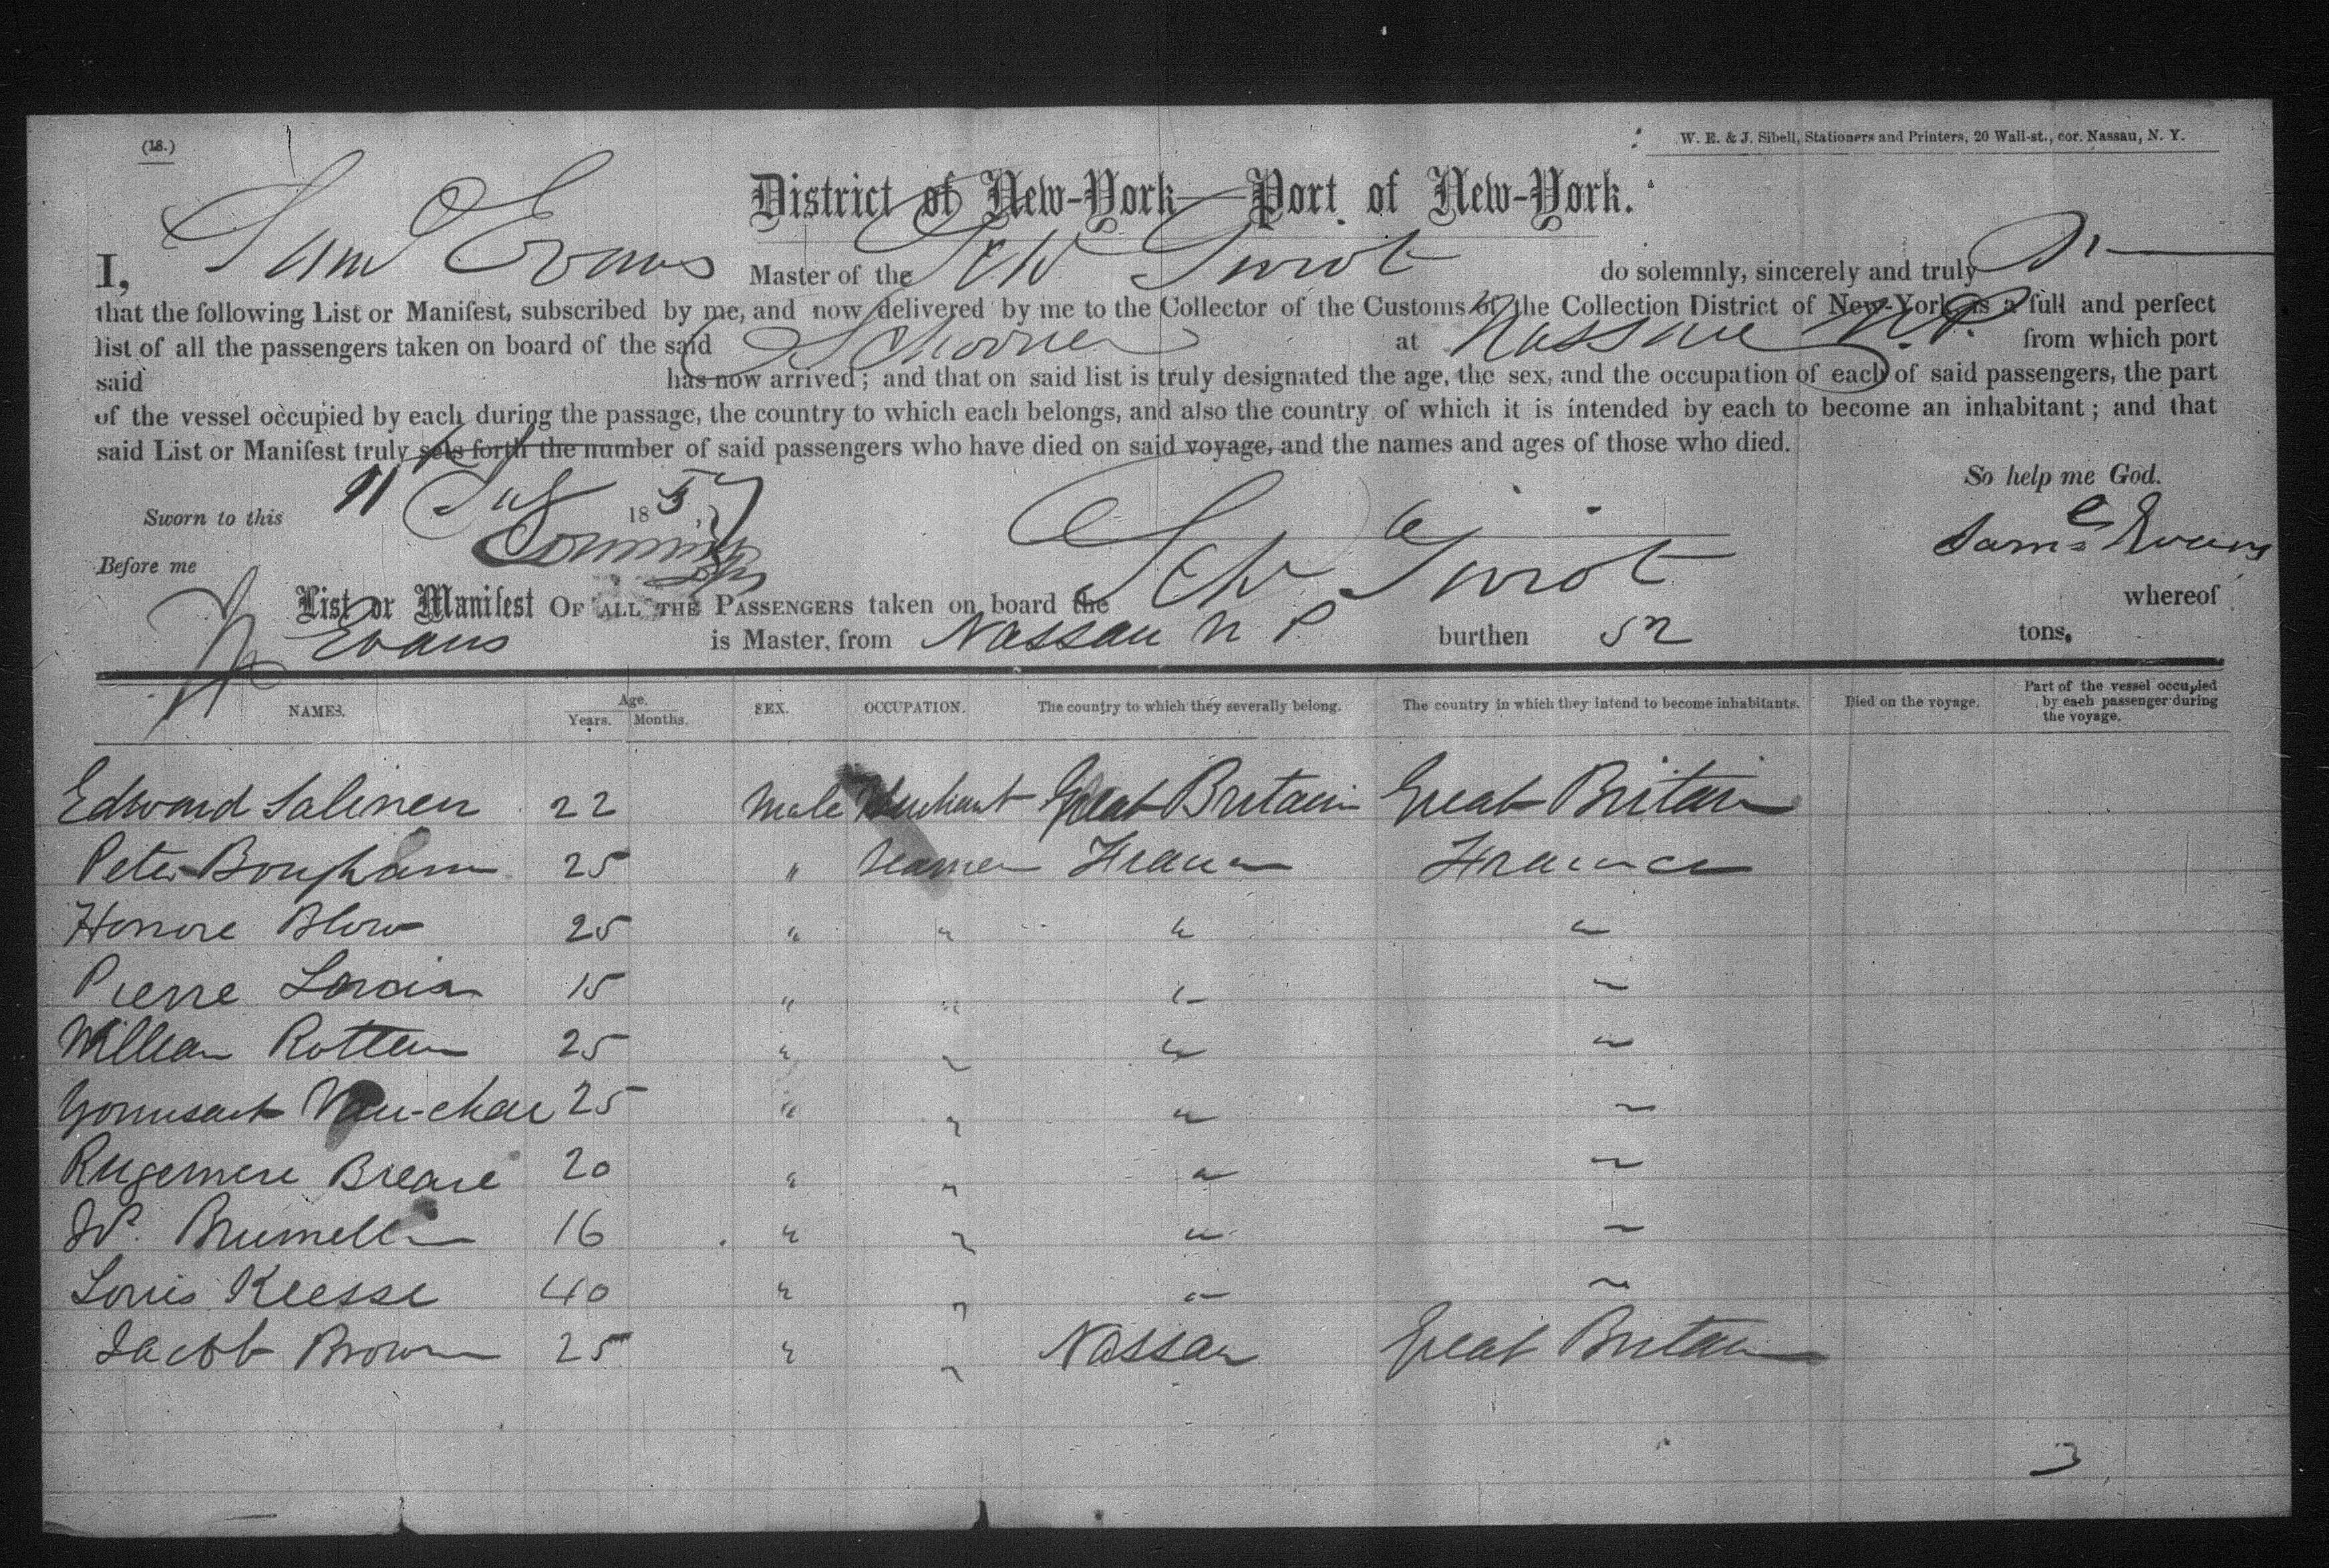 (18.)
W. E. & J. Sibell, Stationers and Printers, 20 Wall-st., cor. Nassau, N. Y.
District of New-York—Port of New-York.
I, Saml Evans Master of the Schr do solemnly, sincerely and truly
that the following List or Manifest, subscribed by me, and now delivered by me to the Collector of the Customs of the Collection District of New-York, is a full and perfect
list of all the passengers taken on board of the said Schooner at Nassau N.P. from which port
said has now arrived; and that on said list is truly designated the age, the sex, and the occupation of each of said passengers, the part
of the vessel occupied by each during the passage, the country to which each belongs, and also the country of which it is intended by each to become an inhabitant; and that
said List or Manifest truly sets forth the number of said passengers who have died on said voyage, and the names and ages of those who died.
So help me God.
Sworn to this 11 1857
Saml Evans
Before me
List or Manifest OF ALL THE PASSENGERS taken on board the Schr whereof
Evans is Master, from Nassau N P burthen 52 tons.
NAMES. Age. Years. Months. SEX. OCCUPATION. The country to which they severally belong. The country in which they intend to become inhabitants. Died on the voyage. Part of the vessel occupied by each passenger during the voyage.
Edward 22 Male Merchant Great Britain Great Britain
Peter 25 " France France
Honore Blow 25 " " " "
Pierre 15 " " " "
William Rotten 25 " " " "
25 " " " "
20 " " " "
W. 16 " " " "
Louis Keesse 40 " " " "
Jacob Brown 25 " " Nassau Great Britain
3